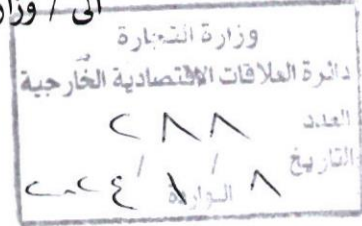 الى / وزار
وزارة التجارة
دائرة العلاقات الاقتصادية الخارجية
العدد ٢٨٨
التاريخ ٨ / ١ / ٢٠٢٤
الواردة